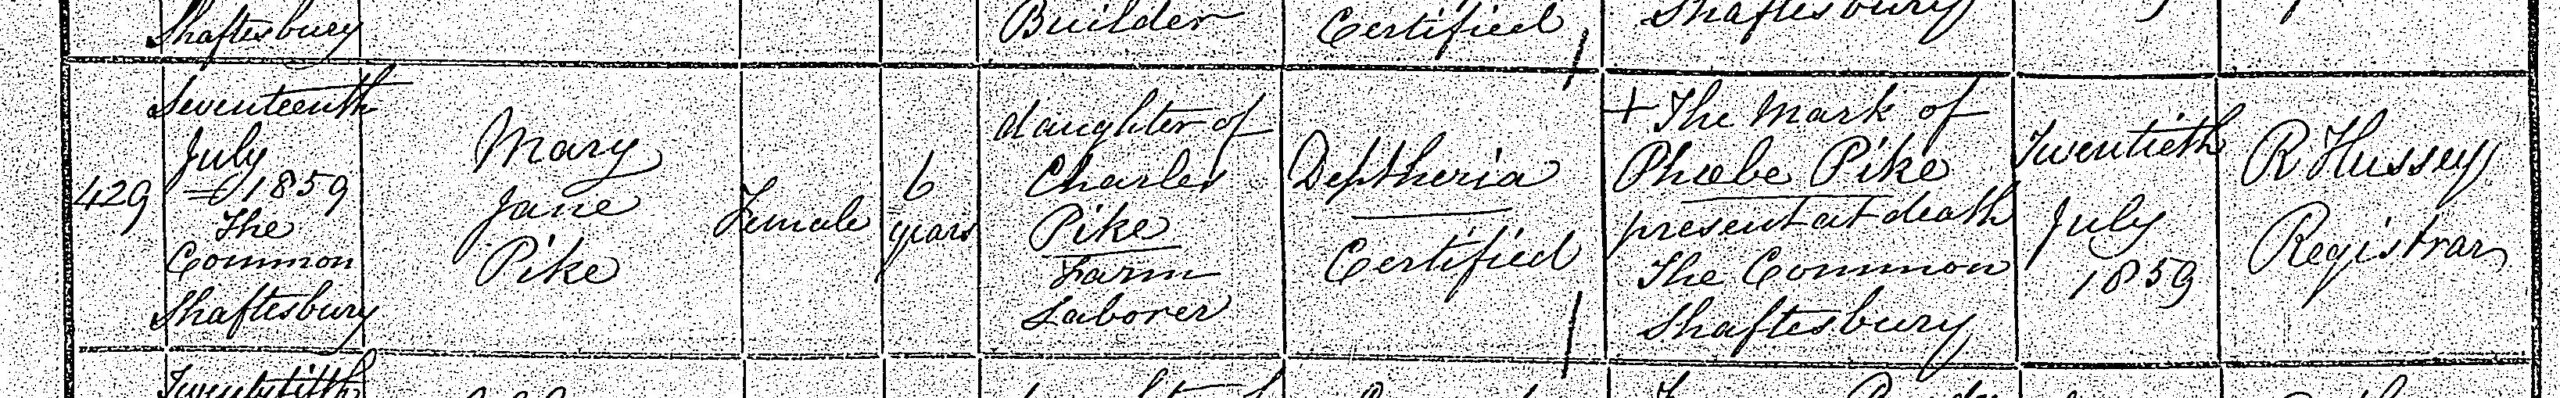 Shaftesbury
Builder
Certified
Shaftesbury
429
Seventeenth
July
1859
The
Common
Shaftesbury
Mary
Jane
Pike
Female
6
years
daughter of
Charles
Pike
Farm
Laborer
Deptheria
Certified
+ The Mark of
Phœbe Pike
present at death
The Common
Shaftesbury
Twentieth
July
1859
R Hussey
Registrar